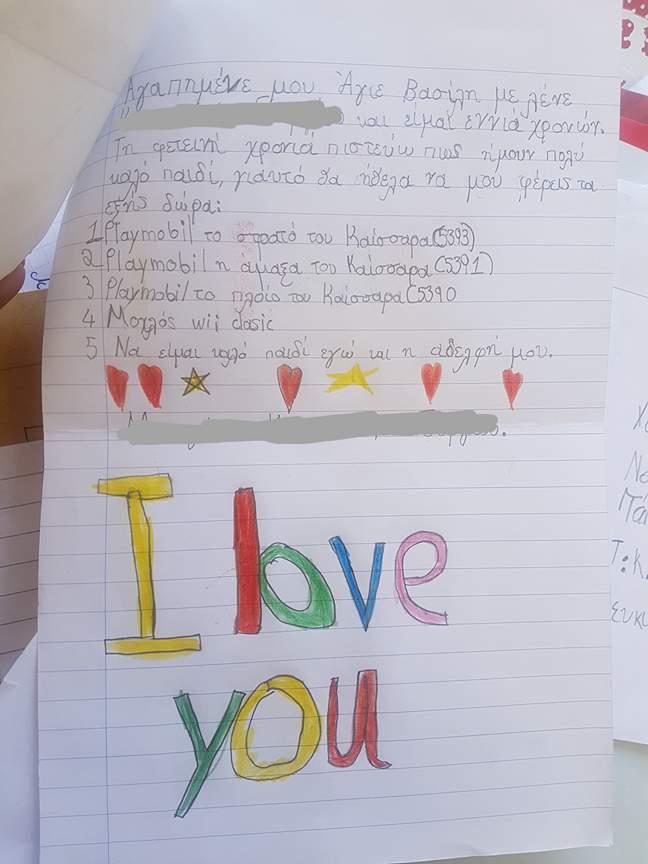 Αγαπημένε μου Άγιε Βασίλη με λένε
και είμαι εννιά χρονών.
Τη φετεινή χρονιά πιστεύω πως ήμουν πολύ
καλό παιδί, γιαυτό θα ήθελα να μου φέρεις τα
εξής δώρα:
1 Playmobil το στρατό του Καίσσαρα (5393)
2 Playmobil η άμαξα του Καίσσαρα (5391)
3 Playmobil το πλοίο του Καίσσαρα (5390
4 Μοχλός wii clasic
5 Να είμαι καλό παιδί εγώ και η αδελφή μου.
I love
you